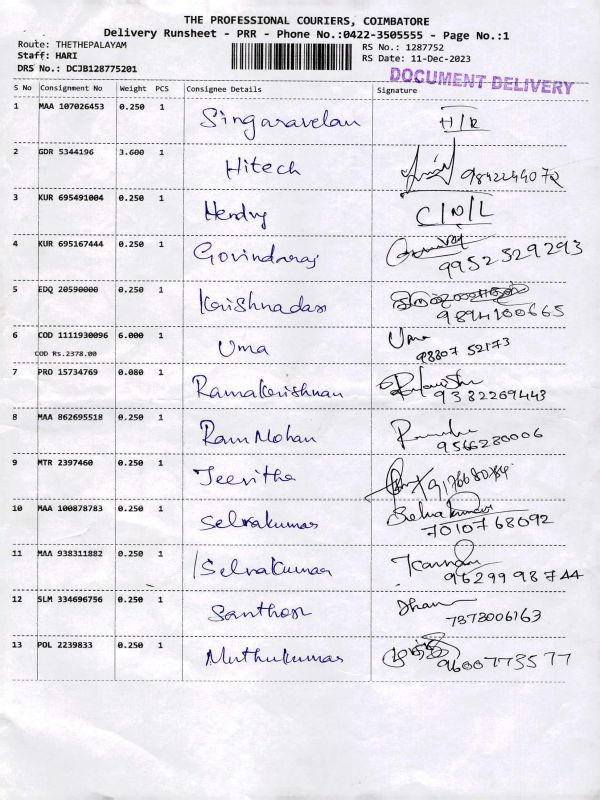 THE PROFESSIONAL COURIERS, COIMBATORE
Delivery Runsheet - PRR - Phone No.:0422-3505555 - Page No.:1
Route: THETHEPALAYAM
RS No.: 1287752
Staff: HARI
RS Date: 11-Dec-2023
DRS No.: DCJB128775201
DOCUMENT DELIVERY
S No Consignment No Weight PCS Consignee Details Signature
1 MAA 107026453 0.250 1 Singaravelan H/R
2 GDR 5344196 3.600 1 Hitech 9842244072
3 KUR 695491004 0.250 1 Hendry C/N/L
4 KUR 695167444 0.250 1 Govindaraj
9952529293
5 EDQ 20590000 0.250 1 Krishnadas
9894100665
6 COD 1111930096 6.000 1 Uma Uma
COD Rs.2378.00 98807 52173
7 PRO 15734769 0.080 1 Ramakrishnan
9382269443
8 MAA 862695518 0.250 1 Ram Mohan
9566280006
9 MTR 2397460 0.250 1 Jeevitha
10 MAA 100878783 0.250 1 Selvakumar Selvakumar
7010768092
11 MAA 938311882 0.250 1 Selvakumar Kannan
9629998744
12 SLM 334696756 0.250 1 Santhosh
7373006163
13 POL 2239833 0.250 1 Muthukumar 9600773577